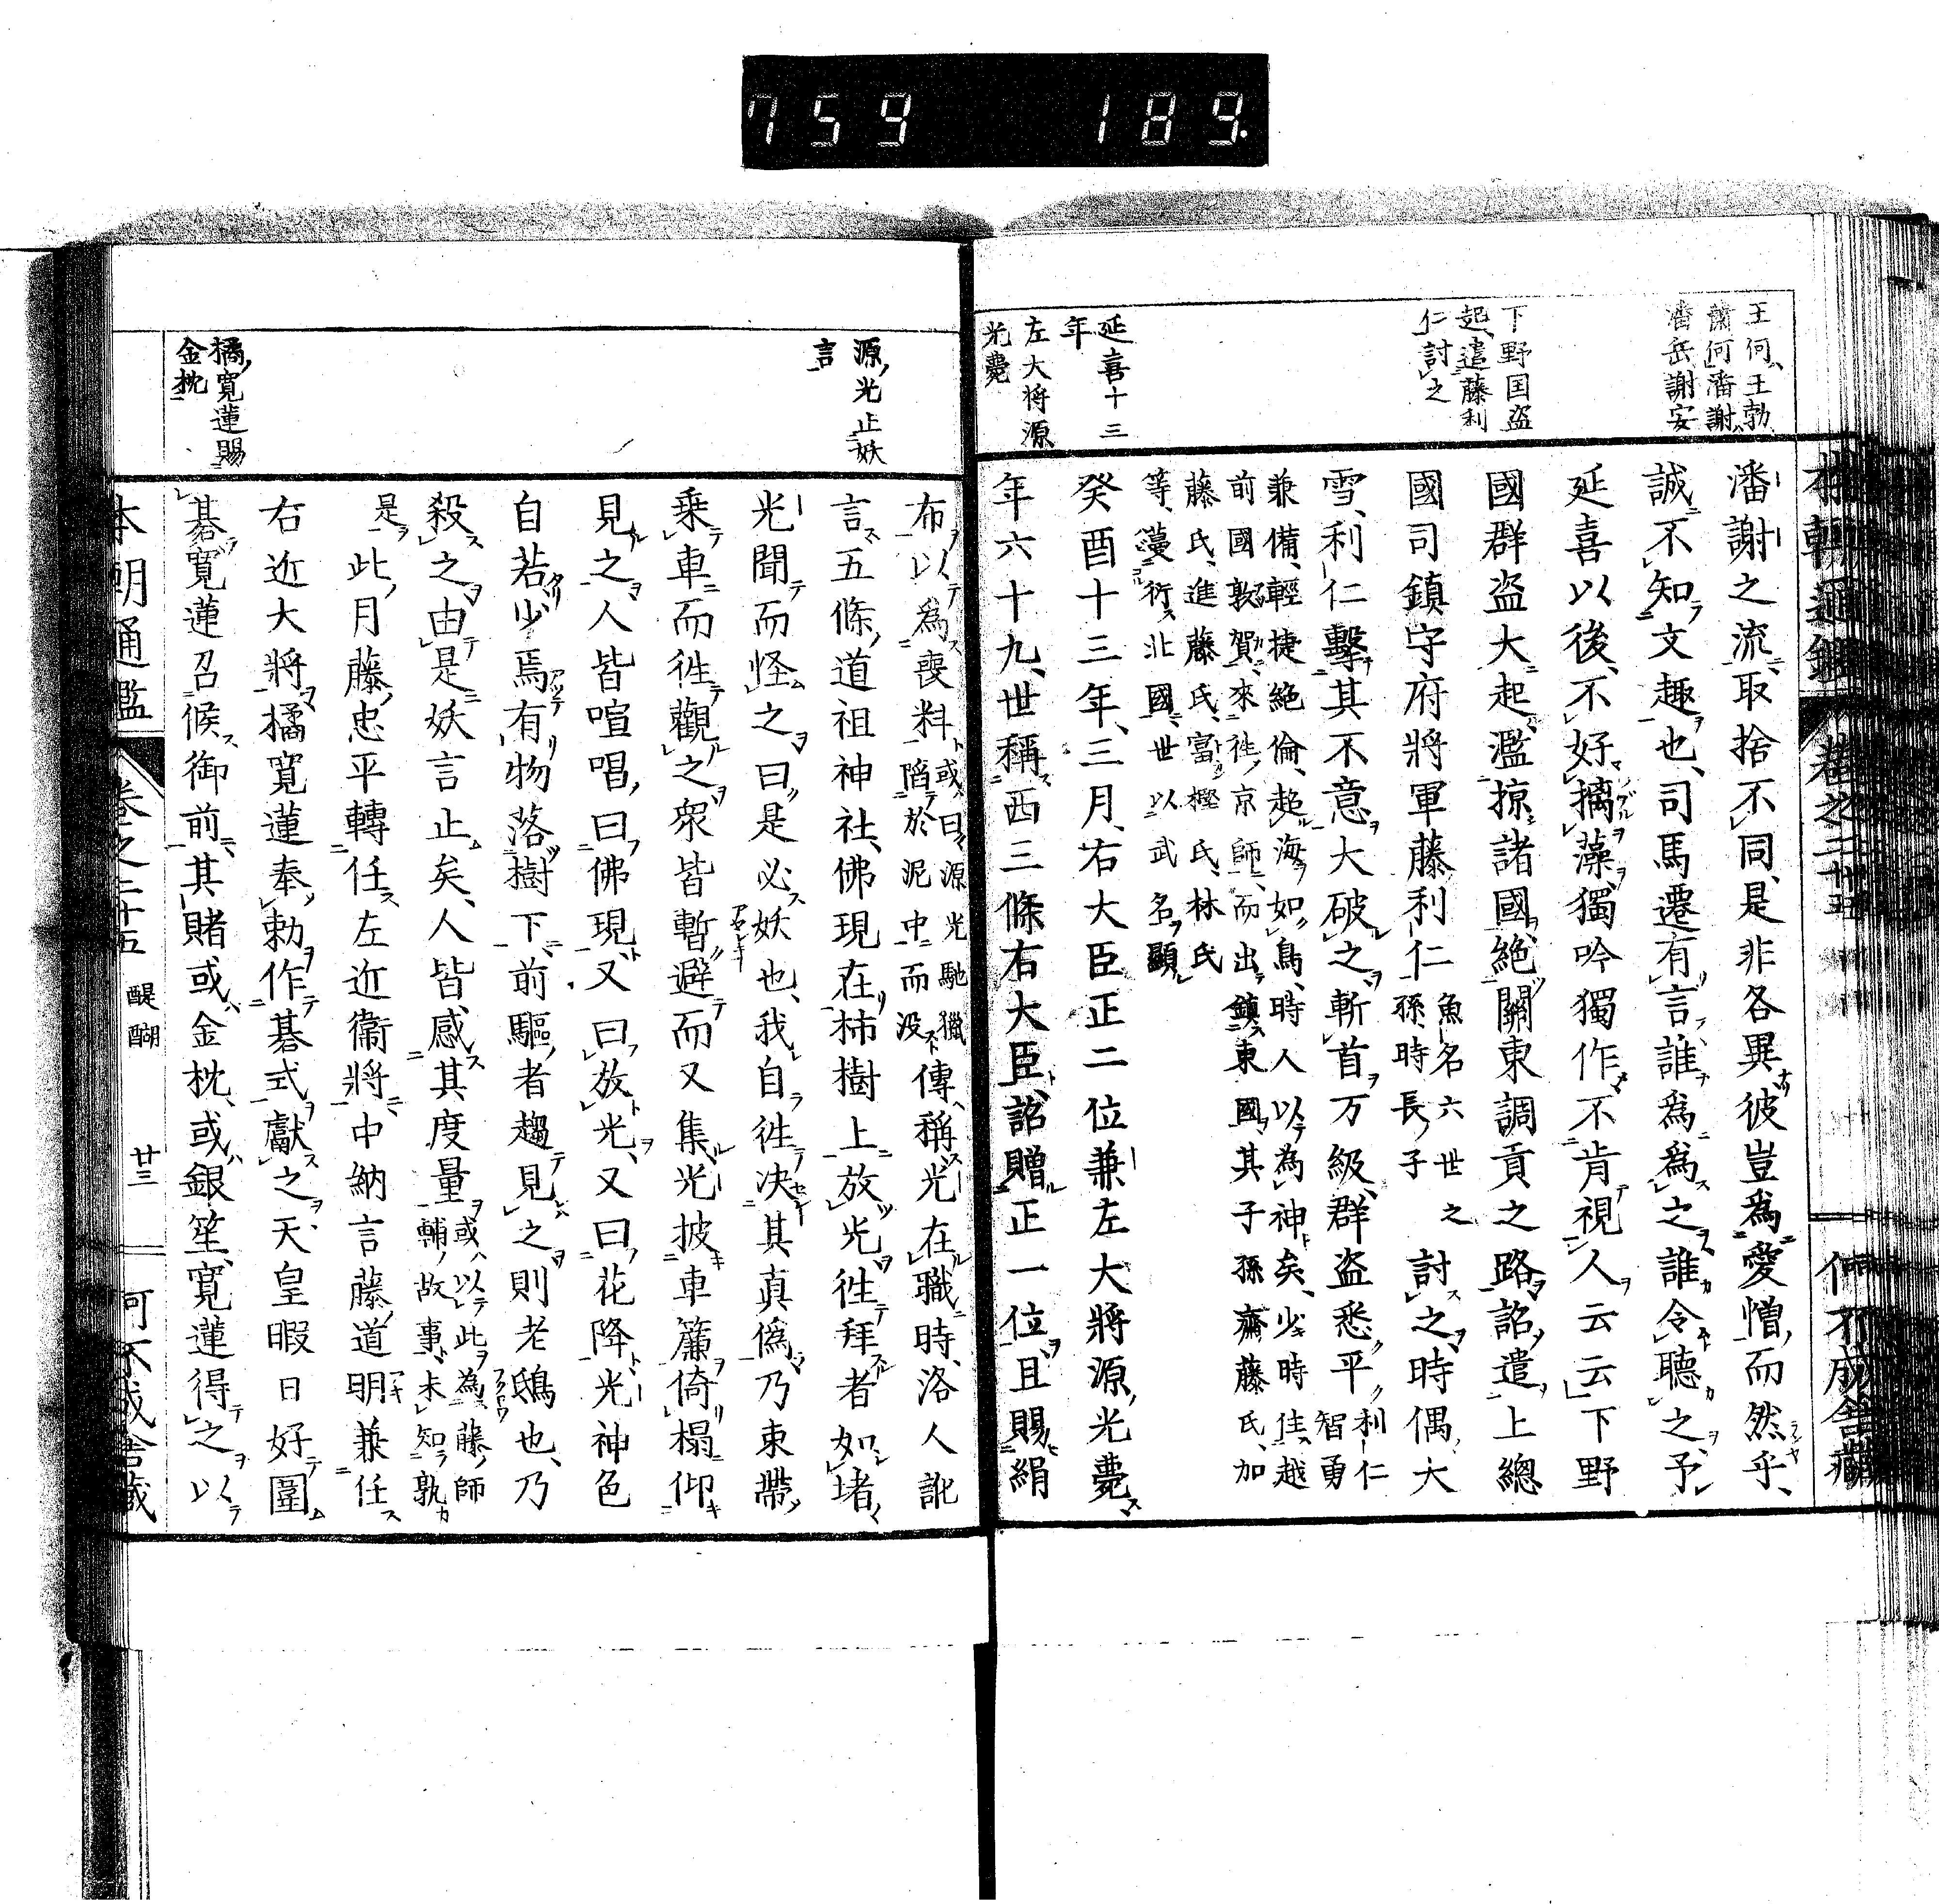 759 189.
王何、王勃、
蕭何、潘謝、
潘岳、謝安
下野国盗
起、遣藤利
仁討之
延喜十三
年
左大将源
光薨
潘謝之流取捨不同、是非各異彼豈為愛憎而然乎、
誠不知文趣也、司馬遷有言、誰為為之、誰令聽之、予
延喜以後、不好摛藻、獨吟獨作、不肯視人云云下野
國群盗大起、濫掠諸國、絶關東調貢之路、詔遣上總
國司鎮守府將軍藤利仁
魚名六世之
孫、時長子
討之、時偶大
雪、利仁擊其不意、大破之、斬首万級、群盗悉平
利仁
智勇
兼備、輕捷絶倫、超海如鳥、時人以為神矣、少時住越
前國敦賀、來徃京師、而出鎮東國、其子孫齋藤氏、加
藤氏、進藤氏、富樫氏、林氏
等、蔓衍北國、世以武名顯
癸酉十三年、三月、右大臣正二位兼左大將源光薨
年六十九、世稱西三條右大臣、詔贈正一位、且賜絹
源光止妖
言
橘寛蓮賜
金枕
布以為喪料
或曰、源光馳獵
陷於泥中而没
傳稱光在職時、洛人訛
言五條道祖神社、佛現在柿樹上放光、徃拜者如堵、
光聞而怪之曰、是必妖也、我自徃決其真偽、乃束帶
乗車而徃觀之、衆皆暫避而又集、光披車簾倚榻仰
見之、人皆喧唱、曰佛現、又曰放光、又曰花降、光神色
自若、少焉有物落樹下、前驅者趨見之、則老鴟也、乃
殺之、由是妖言止矣、人皆感其度量
或以此為藤師
輔故事、未知孰
是
此月藤忠平轉任左近衞將、中納言藤道明兼任
右近大將、橘寛蓮奉勅作碁式獻之、天皇暇日好圍
碁、寛蓮召候御前、其賭或金枕、或銀笙、寛蓮得之以
本朝通鑑
卷之二十五
醍醐
廿三